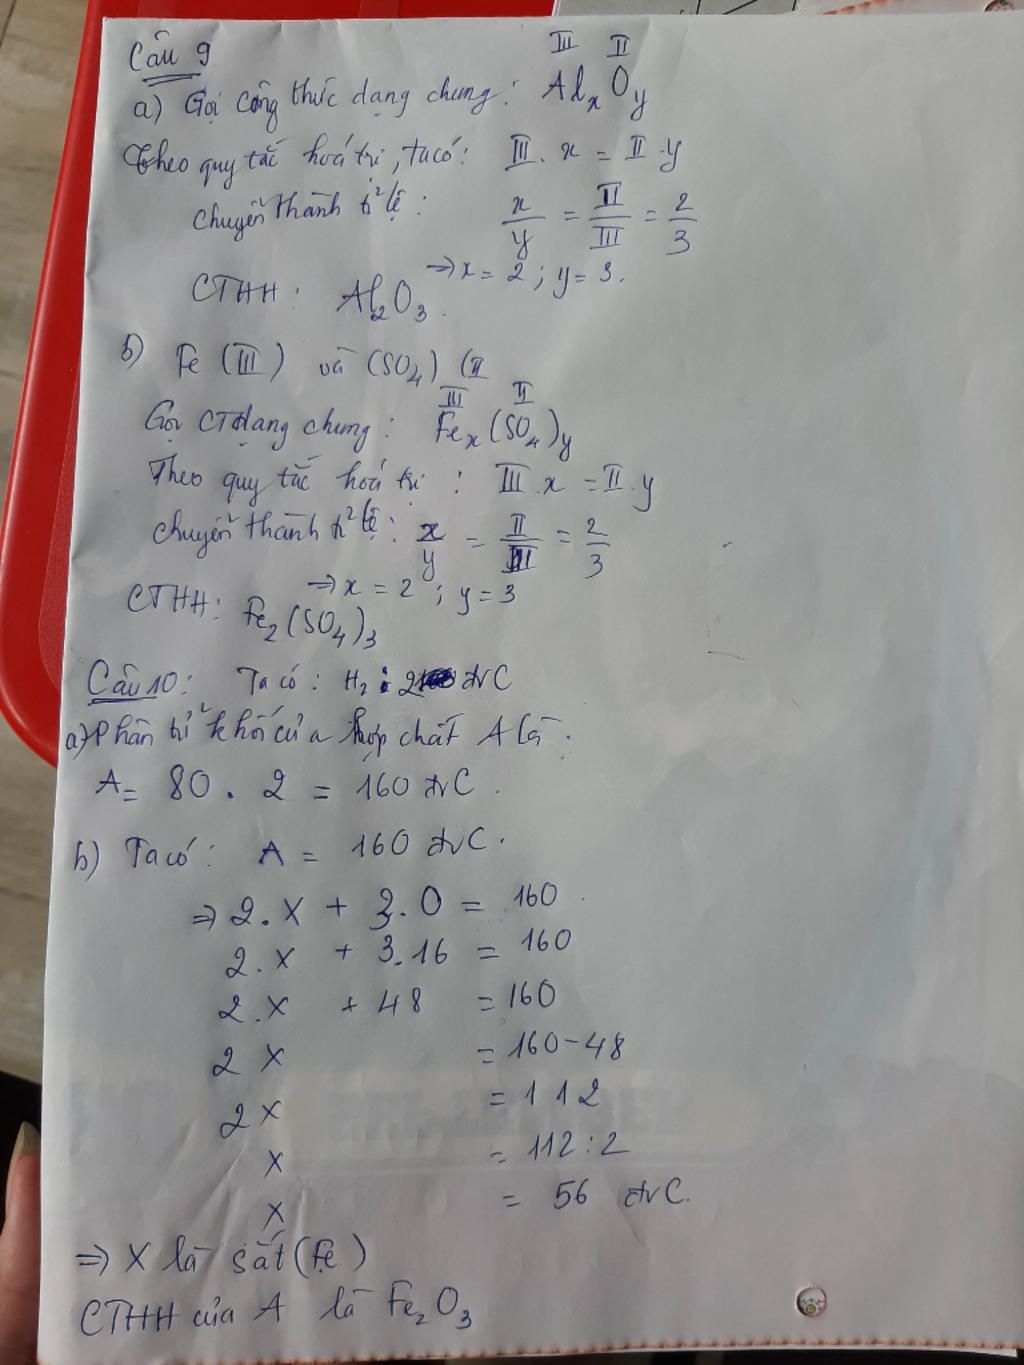 Câu 9
III II
a) Gọi công thức dạng chung: AlxOy
Theo quy tắc hoá trị, ta có: III . x = II . y
chuyển thành tỉ lệ: x/y = II/III = 2/3
⇒ x = 2 ; y = 3.
CTHH: Al₂O₃.
b) Fe (III) và (SO₄) (II
III II
Gọi CT dạng chung: Feₓ(SO₄)y
Theo quy tắc hoá trị : III . x = II . y
chuyển thành tỉ lệ: x/y = II/III = 2/3
⇒ x = 2 ; y = 3
CTHH: Fe₂(SO₄)₃
Câu 10: Ta có : H₂ : 2 đvC
a) Phân tử khối của hợp chất A là.
A = 80 . 2 = 160 đvC.
b) Ta có: A = 160 đvC.
⇒ 2. X + 3. O = 160
2. X + 3.16 = 160
2. X + 48 = 160
2 X = 160 - 48
2 X = 112
X = 112 : 2
X = 56 đvC.
⇒ X là sắt (Fe)
CTHH của A là Fe₂O₃